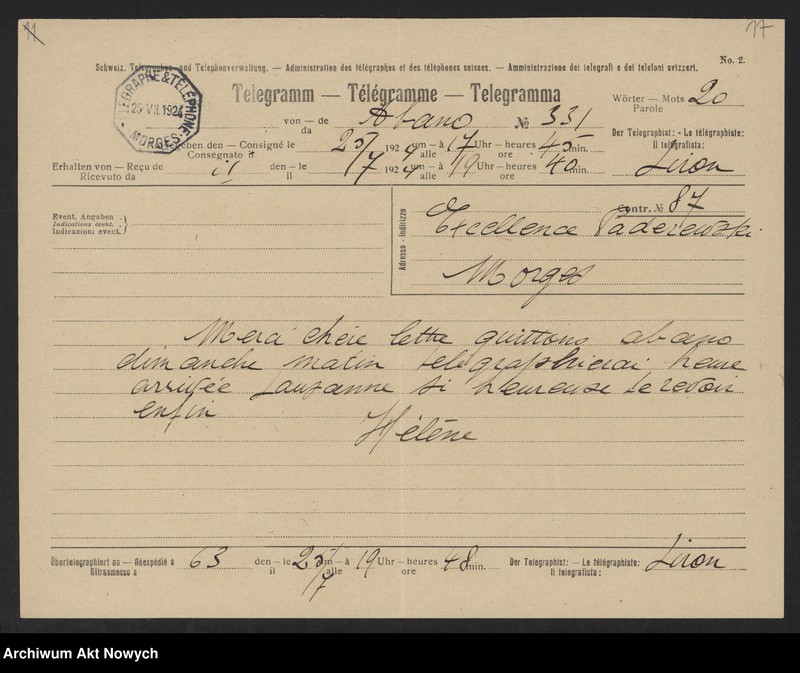 11
17
No. 2.
Schweiz. Telegraphen- und Telephonverwaltung. — Administration des télégraphes et des téléphones suisses. — Amministrazione dei telegrafi e dei telefoni svizzeri.
TÉLÉGRAPHE & TÉLÉPHONE
25 VII. 1924
MORGES
Telegramm — Télégramme — Telegramma
Wörter — Mots 20
Parole
von — de Abano № 331
da
Der Telegraphist: - Le télégraphiste:
Il telegrafista:
Liron
geben den — Consigné le 25/7 1924 um — à 17 Uhr — heures 45 min.
Consegnato il alle ore
Erhalten von — Reçu de il den — le 25/7 1924 um — à 19 Uhr — heures 40 min.
Ricevuto da il alle ore
Event. Angaben
Indications évent.
Indicazioni event.
Adresse - Indirizzo
Contr. № 87
Excellence Paderewski
Morges
Merci chère lettre quittons abano
dimanche matin telegraphierai heure
arrivée Lauzanne si heureuse te revoir
enfin
Hélène
Übertelegraphiert an — Réexpédié à 63 den — le 25/7 um — à 19 Uhr — heures 48 min.
Ritrasmesso a il alle ore
Der Telegraphist: — Le télégraphiste:
Il telegrafista:
Liron
Archiwum Akt Nowych